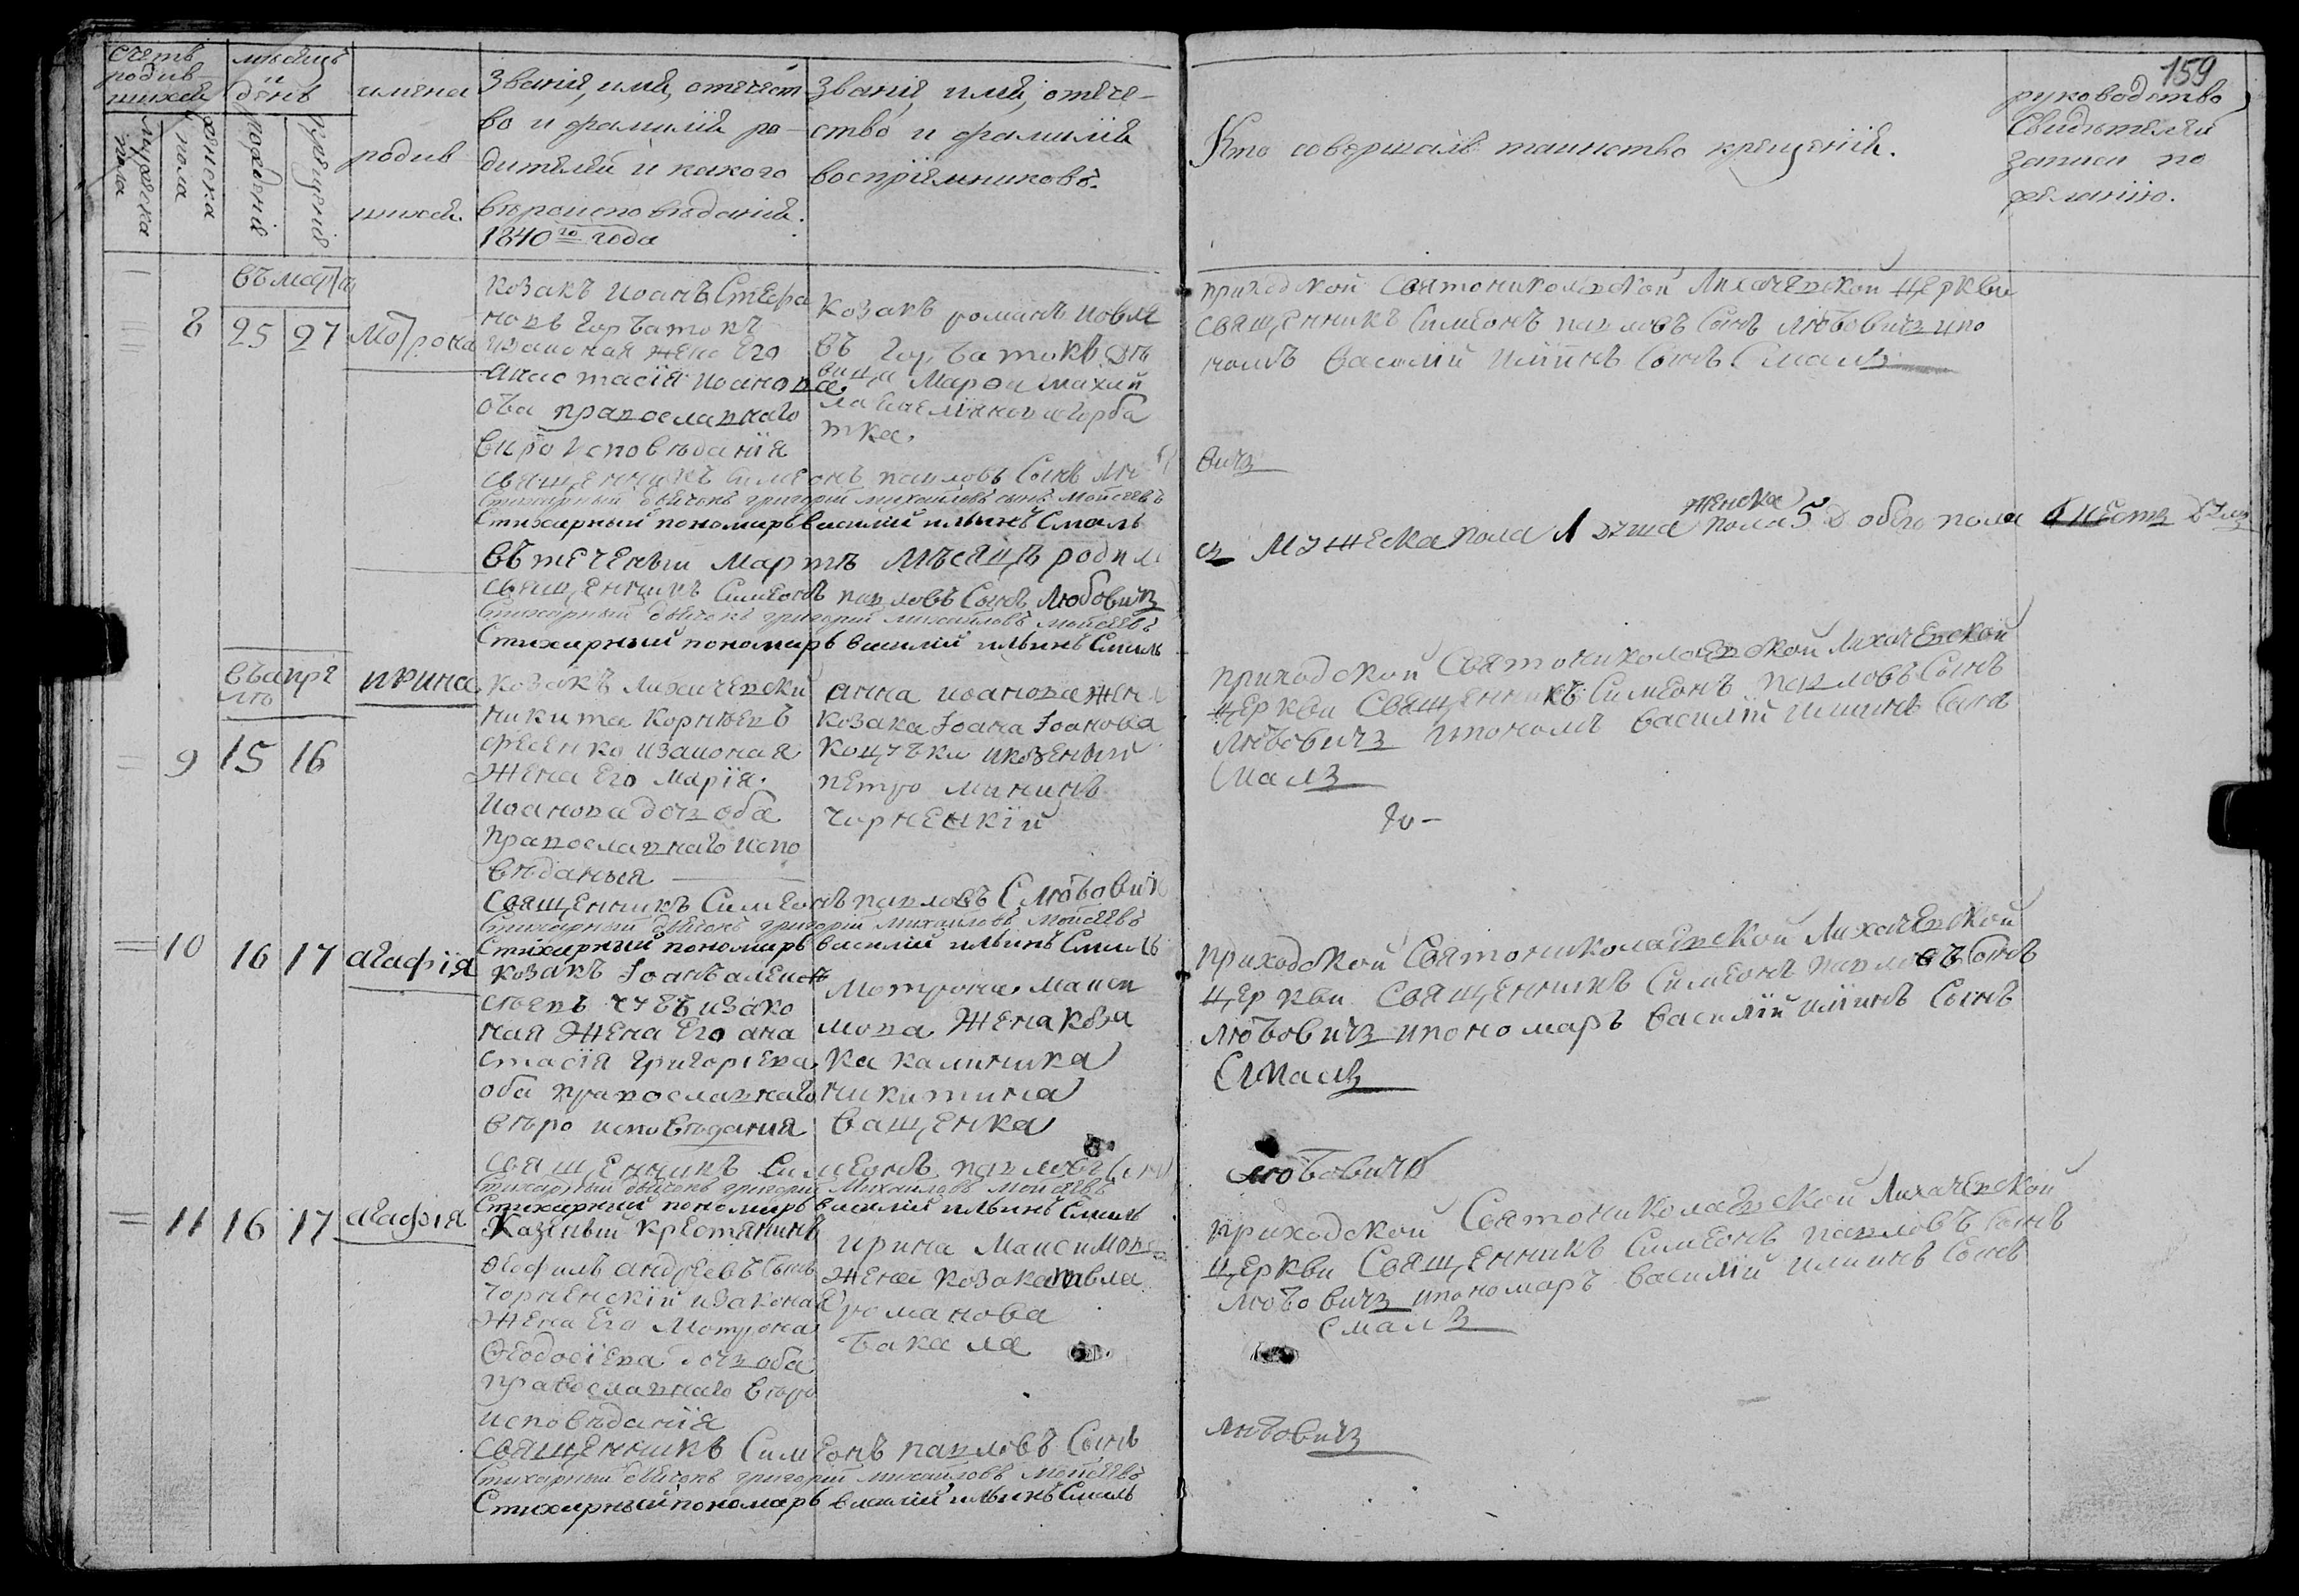 159
счетъ
родив-
шихся
мѣсяцъ
и
день
мужеска
пола
женска
пола
рожденія
крещенія
имена
родив
шихся.
Званіе, имя, отечест
во и фамилія ро-
дителей и какого
вѣроисповѣданія.
1840го года
Званіе, имя, отече-
ство и фамилія
воспріемниковъ.
Кто совершалъ таинство крещенія.
руководство
свидѣтелей
записи по
желанію.
въ мартѣ
8 25 27 Мотрона
козакъ иоанъ Стефа
новъ Горбатокъ
изаконая жена Его
анастасія иоанова
оба православнаго
вѣро исповѣданія
козакъ романъ иовле
въ Горбатокъ дѣ
вица Марфа михай
ла Горба
тка.
приходской святониколаевской Лихачевской церкви
священникъ Симеонъ павловъ Сынъ любовичъ ипо
номъ василій илїинъ Сынъ Смаль
священникъ симеонъ павловъ Сынъ Лю
бичъ
Стихарный дьячокъ григорій михайловъ сынъ Мойсеевъ
Стихарный пономарь василій ильинъ Смаль
въ теченыи Мартъ мѣсяцъ родил
ся Мужеска пола 1 душа женска пола 5 а обего пола 6 шесть душъ
священникъ Симеонъ павловъ Сынъ Любовичъ
Стихарный дьячокъ григорій михайловъ Мойсеевъ
Стихарный пономарь василій ильинъ Смаль
въ апре
лѣ
9 15 16
ирина
козакъ лихачевски
никита Корнѣевъ
фесенко изаконая
Жена Его Марія.
Иоанова дочь оба
православнаго испо
вѣданыя
анна иоанова жена
козака Іоана Іоанова
коцубки иказеный
петро мининъ
чорненкій
приходской Святониколаевской Лихачевской
церкви священникъ Симеонъ павловъ Сынъ
любовичъ ипономъ василій илиинъ Сынъ
Смаль
священникъ Симеонъ павловъ С Любовичъ
Стихарный дьячокъ григорій Михайловъ Мойсеевъ
Стихарный пономарь василій ильинъ Смаль
10 16 17 агафія
козакъ Іоанъ алексѣ
евъ изако
ная Жена Его ана
стасія григоріева
оба православнаго
вѣро исповѣданія
Мотрона Макси
мова Жена коза
ка калиника
никитина
ващенка
приходской Святониколаевской Лихачевской
церкви священникъ Симеонъ павловъ Сынъ
любовичъ ипономаръ василїй илїинъ Сынъ
Смаль
священникъ Симеонъ павловъ С
любовичъ
Стихарный дьячокъ григорій Михайловъ Мойсеевъ
Стихарный пономарь василій ильинъ Смаль
11 16 17 агафія
Казеный крестянинъ
феофилъ андреевъ Сынъ
чорненскій изаконая
жена Его Мотрона
Феодосіева дочь оба
православнаго вѣро
исповѣданія
ирина Максимова
жена козака павла
романова
бакала
приходской Святониколаевской Лихачевской
церкви священникъ Симеонъ павловъ Сынъ
любовичъ ипономаръ василїй илиинъ Сынъ
Смаль
священникъ Симеонъ павловъ Сынъ
любовичъ
Стихарный дьячокъ григорій михайловъ Мойсеевъ
Стихарный пономарь василій ильинъ Смаль